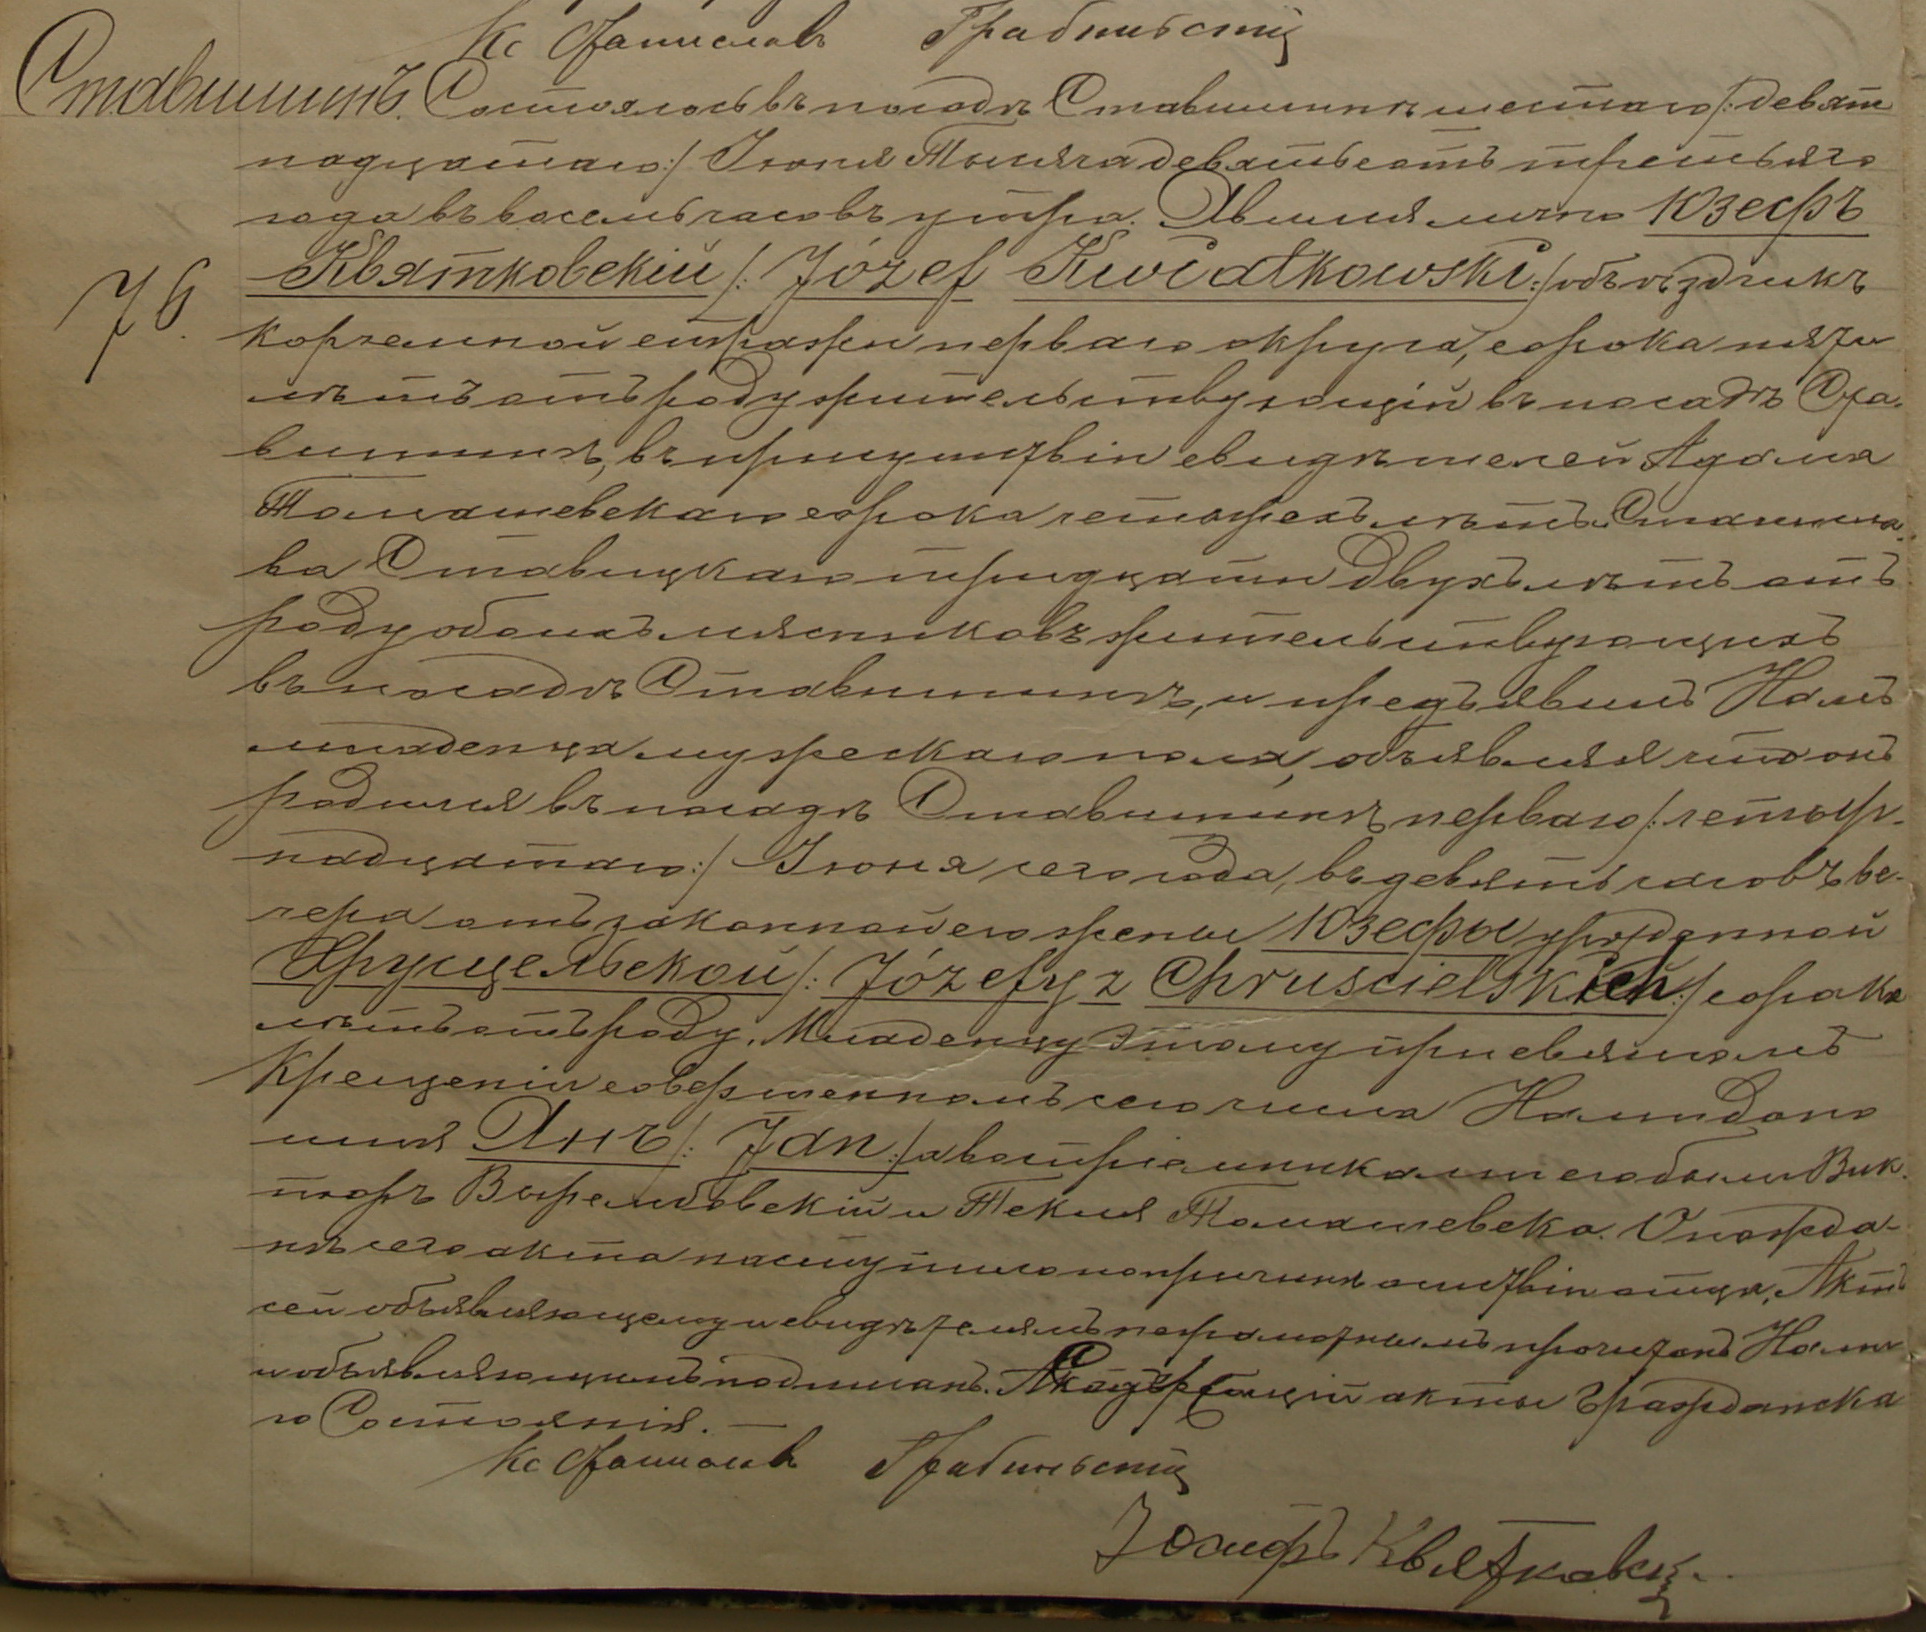 Кс Станиславъ Грабинскій
Ставишинъ. Состоялось въ посадѣ Ставишинѣ шестаго /: девят
надцатаго :/ Іюня Тысяча девятьсотъ третьяго
года въ восемь часовъ утра. Явился лично Юзефъ
76. Квятковскій /: Józef Kwiatkowski :/ объѣздчикъ
корчемной стражи перваго округа, сорока пяти
лѣтъ отъ роду жительствующій въ посадѣ Ста-
вишинѣ, въ присутствіи свидѣтелей Адама
Томашевскаго сорока четырехъ лѣтъ и Станисла-
ва Ставицкаго тридцати двухъ лѣтъ отъ
роду обоихъ мясниковъ жительствующихъ
въ посадѣ Ставишинѣ, и предъявилъ Намъ
младенца мужескаго пола, объявляя что онъ
родился въ посадѣ Ставишинѣ перваго /: четыр-
надцатаго :/ Іюня сего года, въ девять часовъ ве-
чера отъ законной его жены Юзефы урожденной
Хрусцельской /: Józefy z Chruścielskich :/ сорока
лѣтъ отъ роду. Младенцу этому при святомъ
Крещеніи совершенномъ сего числа Нами дано
имя Янъ /: Jan :/ а воспріемниками его были Вик-
торъ Вырембовскій и Текля Томашевска. Опозда-
ніе сего акта наступило по причинѣ отсутствія отца. Актъ
сей объявляющему и свидѣтелямъ неграмотнымъ прочитанъ Нами
и объявляющимъ подписанъ. Содержащій акты Гражданска
го Состоянія. —
Кс Станиславъ Грабинскій
Іосифъ Квятковскі.